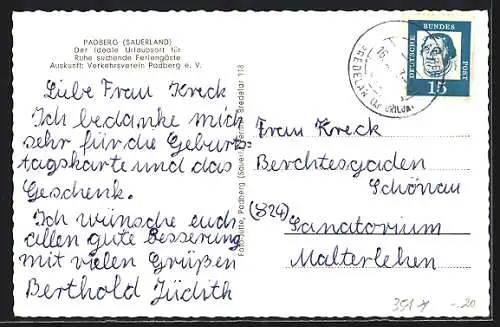 PADBERG (SAUERLAND)
Der ideale Urlaubsort für
Ruhe suchende Feriengäste
Auskunft: Verkehrsverein Padberg e. V.
Liebe Frau Kreck
Ich bedanke mich
sehr für die Geburt=
tagskarte und das
Geschenk.
Ich wünsche euch
allen gute besserung
mit vielen Grüßen
Berthold Jüdith
Padberg (Sauerland) Bredelar 318
DEUTSCHE BUNDES POST
15
Frau Kreck
Berchtesgaden
Schönau
(824)
Sanatorium
Malterlehen
351 -.20